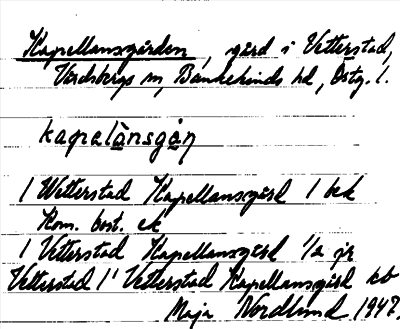 Kapellansgården, gård i Vetterstad,
Vårdsbergs sn, Bankekinds hd, Östg. l.
kapelànsgån
1 Wetterstad Kapellansgård 1 bek
Kom. bost. ek
1 Vetterstad Kapellansgård 1/2 jr
Vetterstad 1¹ Vetterstad Kapellansgård kb
Maja Nordlind 1947.